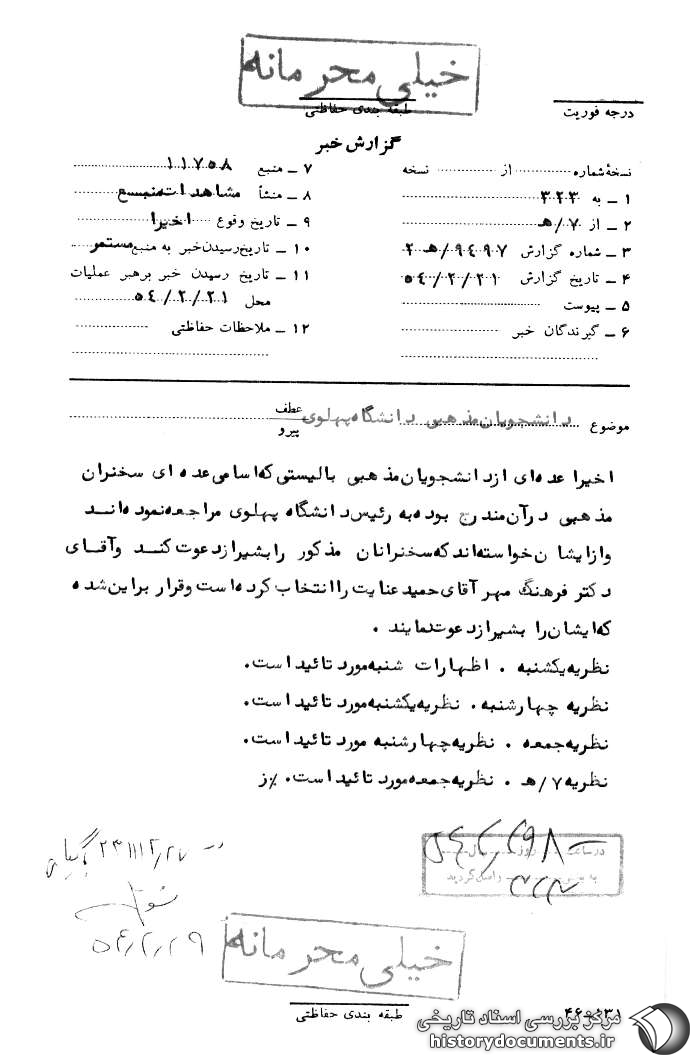 خیلی محرمانه
طبقه بندی حفاظتی
درجه فوریت
گزارش خبر
نسخهٔ شماره از نسخه
۱ ــ به ۳۲۳
۲ ــ از ۷/هـ
۳ ــ شماره گزارش ۹۴۹۷/هـ ۲
۴ ــ تاریخ گزارش ۵۴/۲/۲۱
۵ ــ پیوست
۶ ــ گیرندگان خبر
۷ ــ منبع ۱۱۷۵۸
۸ ــ منشأ مشاهدات منبع
۹ ــ تاریخ وقوع اخیرا
۱۰ ــ تاریخ رسیدن خبر به منبع مستمر
۱۱ ــ تاریخ رسیدن خبر برهبر عملیات
محل ۵۴/۲/۲۱
۱۲ ــ ملاحظات حفاظتی
موضوع دانشجویان مذهبی دانشگاه پهلوی عطف
پیرو
اخیرا عده ای از دانشجویان مذهبی با لیستی که اسامی عده ای سخنران
مذهبی در آن مندرج بوده به رئیس دانشگاه پهلوی مراجعه نموده اند
و از ایشان خواسته اند که سخنرانان مذکور را بشیراز دعوت کند و آقای
دکتر فرهنگ مهر آقای حمید عنایت را انتخاب کرده است و قرار بر این شده
که ایشان را بشیراز دعوت نمایند .
نظریه یکشنبه . اظهارات شنبه مورد تائید است.
نظریه چهارشنبه . نظریه یکشنبه مورد تائید است.
نظریه جمعه . نظریه چهارشنبه مورد تائید است.
نظریه ۷/هـ . نظریه جمعه مورد تائید است. ٪ز
در ساعت روز سال
به واصل گردید
۵۴/۲/۲۹
خیلی محرمانه
طبقه بندی حفاظتی
مرکز بررسی اسناد تاریخی
historydocuments.ir